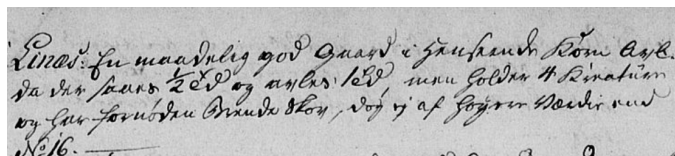 Linæs: En maadelig god Gaard i Henseende Korn Avl.
da der saaes ½ td og avles 1 td men holder 4 Kreatüre
og har fornøden Brende Skov, dog ej af høyere Værdie end
No 16.